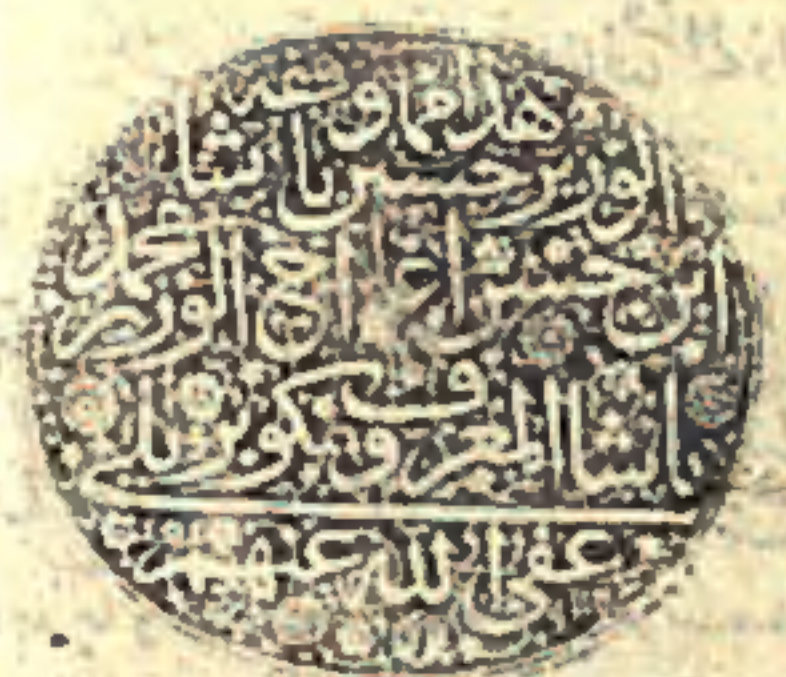 هذا مما وقفه
الوزير حسين باشا
ابن حسن اغا اخ الوزير محمد
باشا المعروف بكوبريلي
عفى الله عنهم